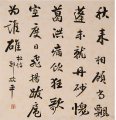 秋来相顾尚飘
蓬未就丹砂愧
葛洪痛饮狂歌
空度日飞扬跋扈
为谁雄